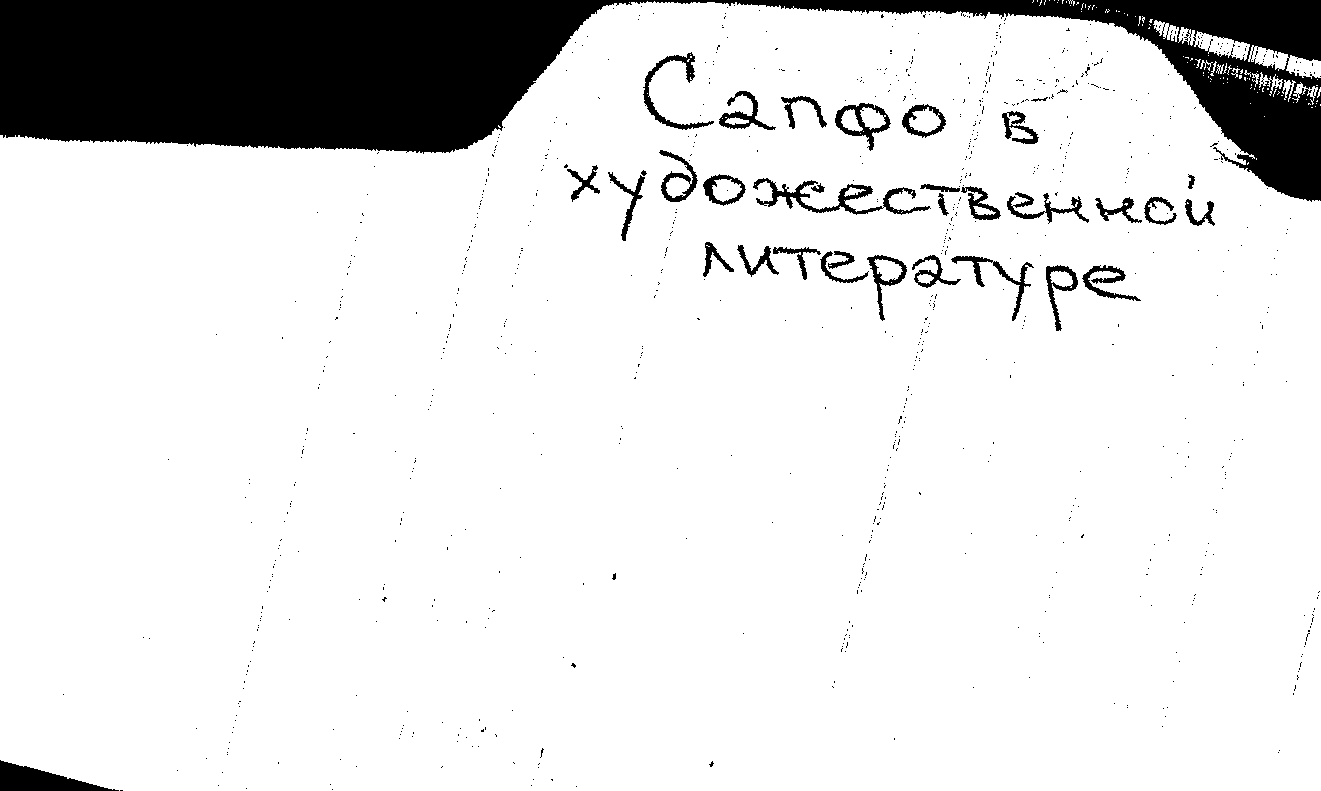 Сапфо в
художественной
литературе